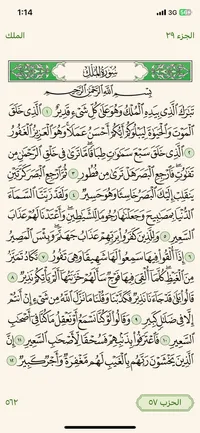 1:14
3G
الملك
الجزء ٢٩
سُورَةُ المُلْكِ
بِسْمِ ٱللَّهِ ٱلرَّحْمَٰنِ ٱلرَّحِيمِ
تَبَٰرَكَ ٱلَّذِي بِيَدِهِ ٱلْمُلْكُ وَهُوَ عَلَىٰ كُلِّ شَيْءٍ قَدِيرٌ ١ ٱلَّذِي خَلَقَ
ٱلْمَوْتَ وَٱلْحَيَوٰةَ لِيَبْلُوَكُمْ أَيُّكُمْ أَحْسَنُ عَمَلًا وَهُوَ ٱلْعَزِيزُ ٱلْغَفُورُ
٢ ٱلَّذِي خَلَقَ سَبْعَ سَمَٰوَٰتٍ طِبَاقًا مَّا تَرَىٰ فِي خَلْقِ ٱلرَّحْمَٰنِ مِن
تَفَٰوُتٍ فَٱرْجِعِ ٱلْبَصَرَ هَلْ تَرَىٰ مِن فُطُورٍ ٣ ثُمَّ ٱرْجِعِ ٱلْبَصَرَ كَرَّتَيْنِ
يَنقَلِبْ إِلَيْكَ ٱلْبَصَرُ خَاسِئًا وَهُوَ حَسِيرٌ ٤ وَلَقَدْ زَيَّنَّا ٱلسَّمَآءَ
ٱلدُّنْيَا بِمَصَٰبِيحَ وَجَعَلْنَٰهَا رُجُومًا لِّلشَّيَٰطِينِ وَأَعْتَدْنَا لَهُمْ عَذَابَ
ٱلسَّعِيرِ ٥ وَلِلَّذِينَ كَفَرُوا۟ بِرَبِّهِمْ عَذَابُ جَهَنَّمَ وَبِئْسَ ٱلْمَصِيرُ
٦ إِذَآ أُلْقُوا۟ فِيهَا سَمِعُوا۟ لَهَا شَهِيقًا وَهِيَ تَفُورُ ٧ تَكَادُ تَمَيَّزُ
مِنَ ٱلْغَيْظِ كُلَّمَآ أُلْقِيَ فِيهَا فَوْجٌ سَأَلَهُمْ خَزَنَتُهَآ أَلَمْ يَأْتِكُمْ نَذِيرٌ ٨
قَالُوا۟ بَلَىٰ قَدْ جَآءَنَا نَذِيرٌ فَكَذَّبْنَا وَقُلْنَا مَا نَزَّلَ ٱللَّهُ مِن شَيْءٍ إِنْ أَنتُمْ
إِلَّا فِي ضَلَٰلٍ كَبِيرٍ ٩ وَقَالُوا۟ لَوْ كُنَّا نَسْمَعُ أَوْ نَعْقِلُ مَا كُنَّا فِيٓ أَصْحَٰبِ
ٱلسَّعِيرِ ١٠ فَٱعْتَرَفُوا۟ بِذَنۢبِهِمْ فَسُحْقًا لِّأَصْحَٰبِ ٱلسَّعِيرِ ١١ إِنَّ
ٱلَّذِينَ يَخْشَوْنَ رَبَّهُم بِٱلْغَيْبِ لَهُم مَّغْفِرَةٌ وَأَجْرٌ كَبِيرٌ ١٢
٥٦٢
الحزب ٥٧